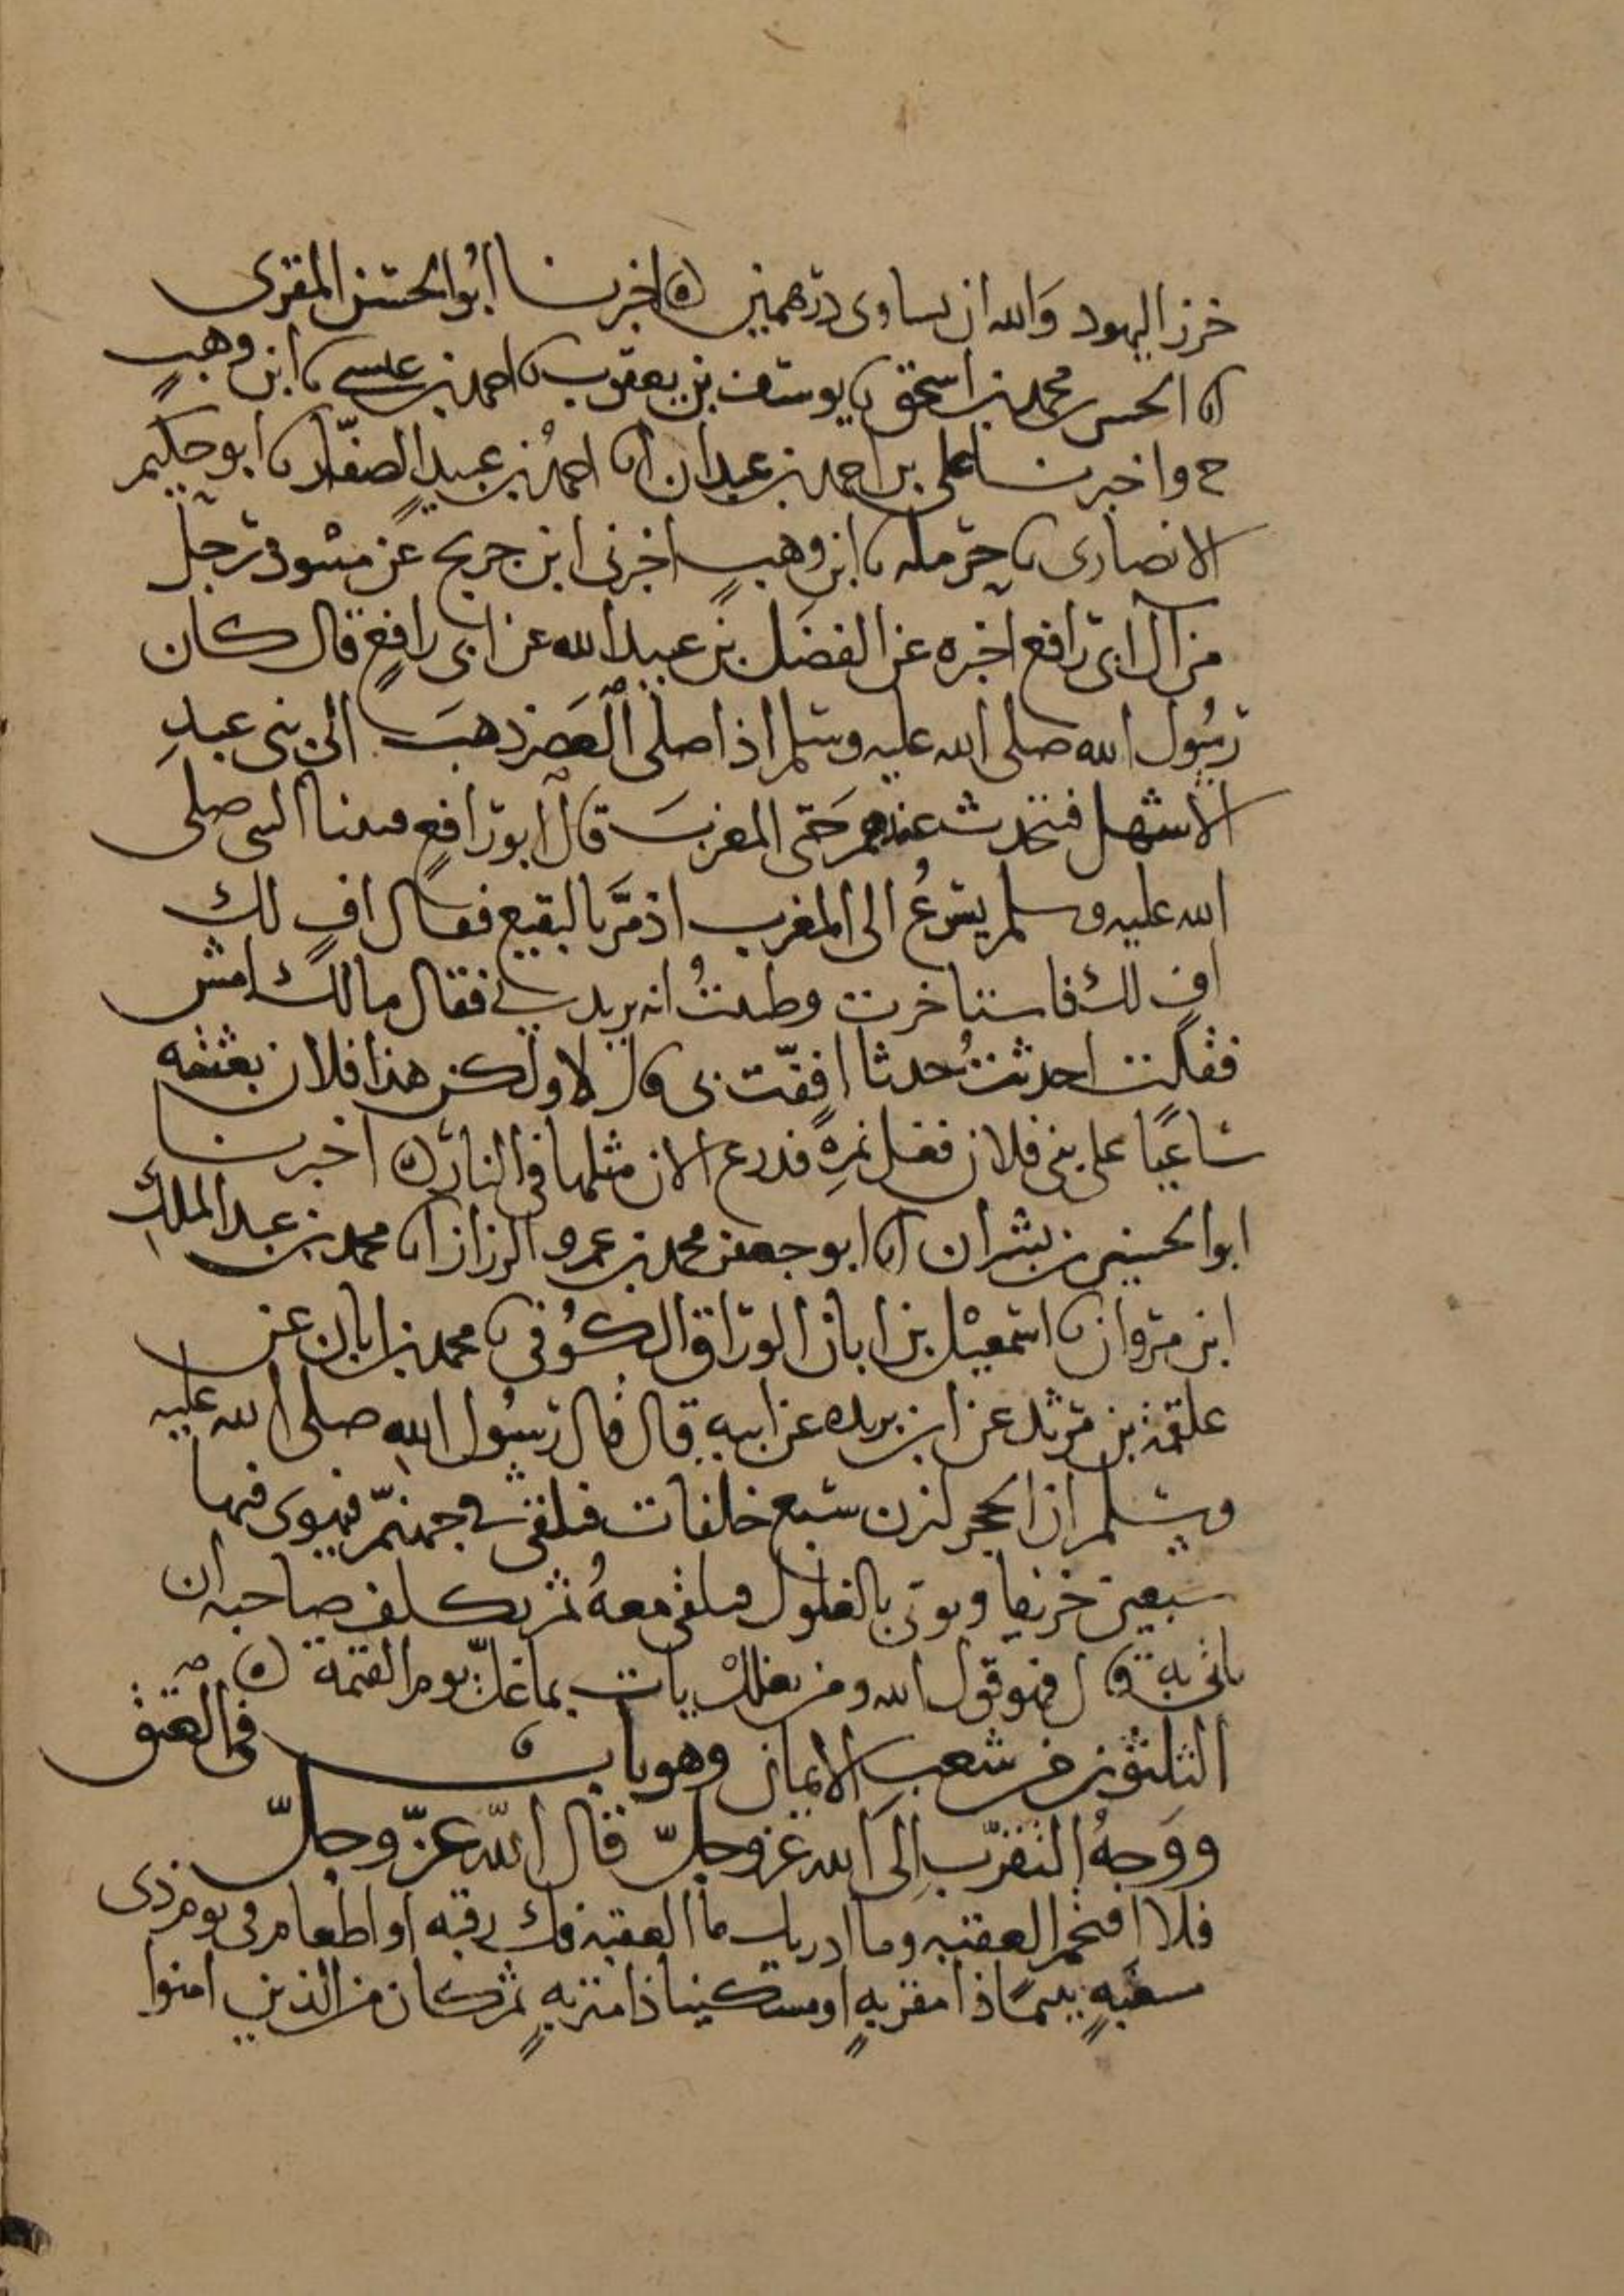 خرز اليهود وَالله ان يساوى درهمين ۞ اخبرنا ابُو الحسَن المقرى
انا الحسن بن محمد بن اسحق نا يوسف بن يعقوب نا احمد بن عيسى نا ابن وهبٍ
ح واخبرنا على بن احمد بن عبدان انا احمدُ بن عبيدٍ الصفّار نا ابو حكيم
الانصارى نا حرمله نا ابن وهبٍ اخبرنى ابن جريج عن منبوذ رجل
من آل ابى رافع اخبره عن الفضَل بن عبيد الله عن ابى رافعٍ قال كان
رسُول الله صلى الله عليه وسلم اذا صلى العَصر ذهبَ الى بنى عبدِ
الاشهل فتحدث عندهم حَتى المغربَ قال ابو رافعٍ فبينا النبى صلى
الله عليه وسلم يسرعُ الى المغرب اذ مرَّ بالبقيع فقال افٍ لك
افٍ لك فاستاخرت وظننتُ انه يريدنى فقال مالك امش
فقلت احدثتُ حدثا اففّت بى قال لا ولكن هذا فلان بعثته
سَاعيًا على بنى فلان فغل نمرةٍ فدرع الان مثلها فى النار ۞ اخبرنا
ابو الحسين بن بشران انا ابو جعفر محمد بن عمرو الرزاز انا محمد بن عبد الملكِ
ابن مروان نا اسمعيْل بن ابان الوراق الكُوفى نا محمد بن ابان عن
علقمة بن مرثد عن ابن بريده عن ابيه قال قال رسُول اللهِ صلى الله عليه
وسلم ان الحجر لتزن سبع خلفات فيلقى فى جهنّم فيهوى فيها
سبعين خريفا ويوتى بالغلول فيلقى معهُ ثم يكلف صاحبه ان
ياتى به قال فهو قول الله ومن يغللْ يات بما غلّ يوم القيمة ۞
الثلثون من شعبِ الايمان وهو باب فى العتق
ووَجهُ التقرّب إلى الله عز وجلّ قال اللّه عزّ وجلّ
فلا اقتحم العقبه وما ادريك ما العقبة فك رقبه او اطعام فى يوم ذى
مسغبهٍ يتيمًا ذا مقربهٍ او مسكينا ذا متربهٍ ثم كان من الذين امنوا